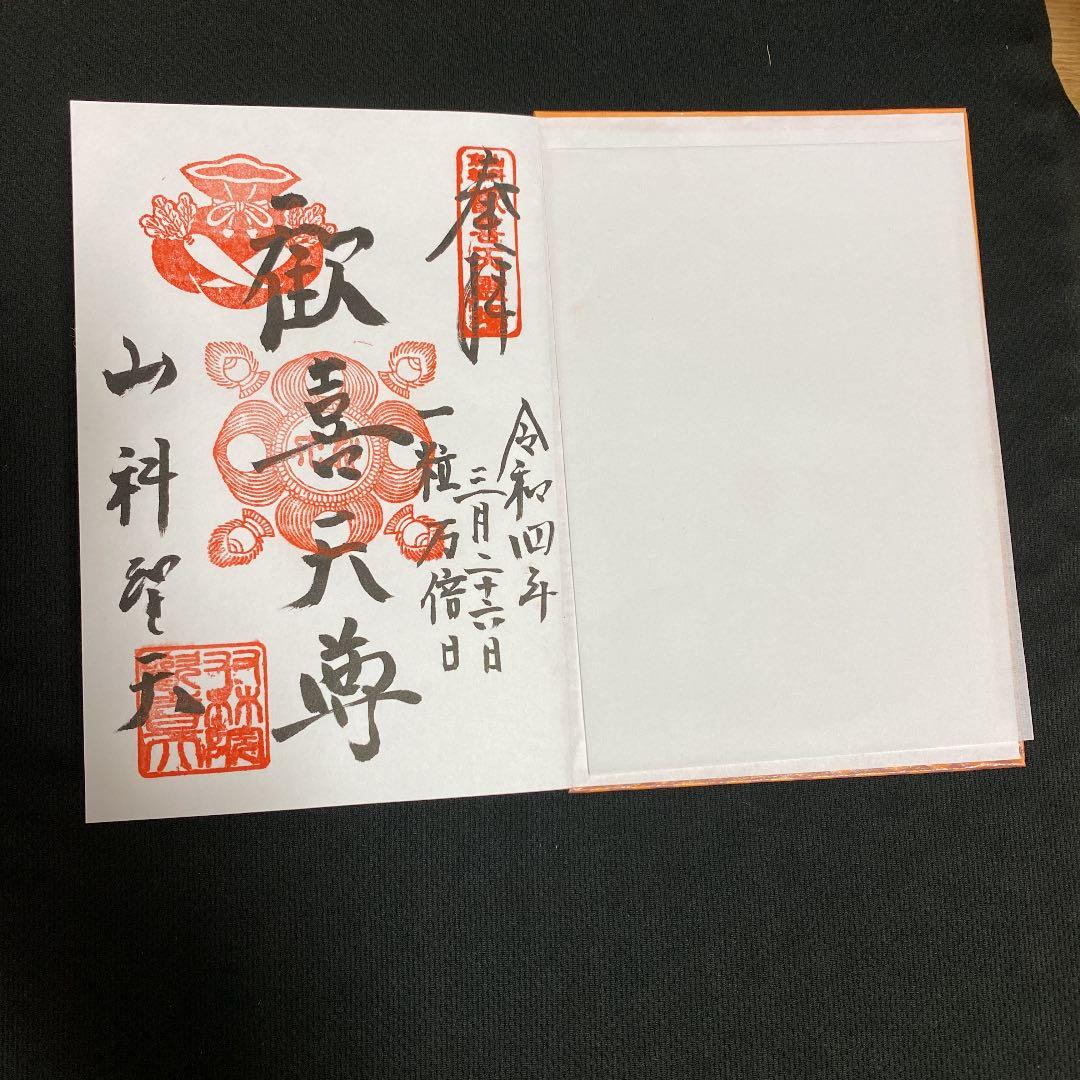 奉拝
令和四年
三月二十六日
一粒万倍日
歓喜天尊
山科聖天
双林院